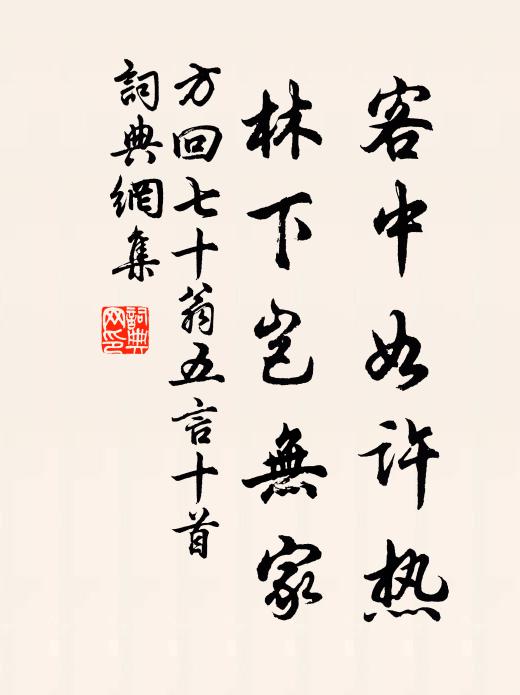 客中如许热
林下岂無家
方回七十翁五言十首
詞典網集
詞典网印